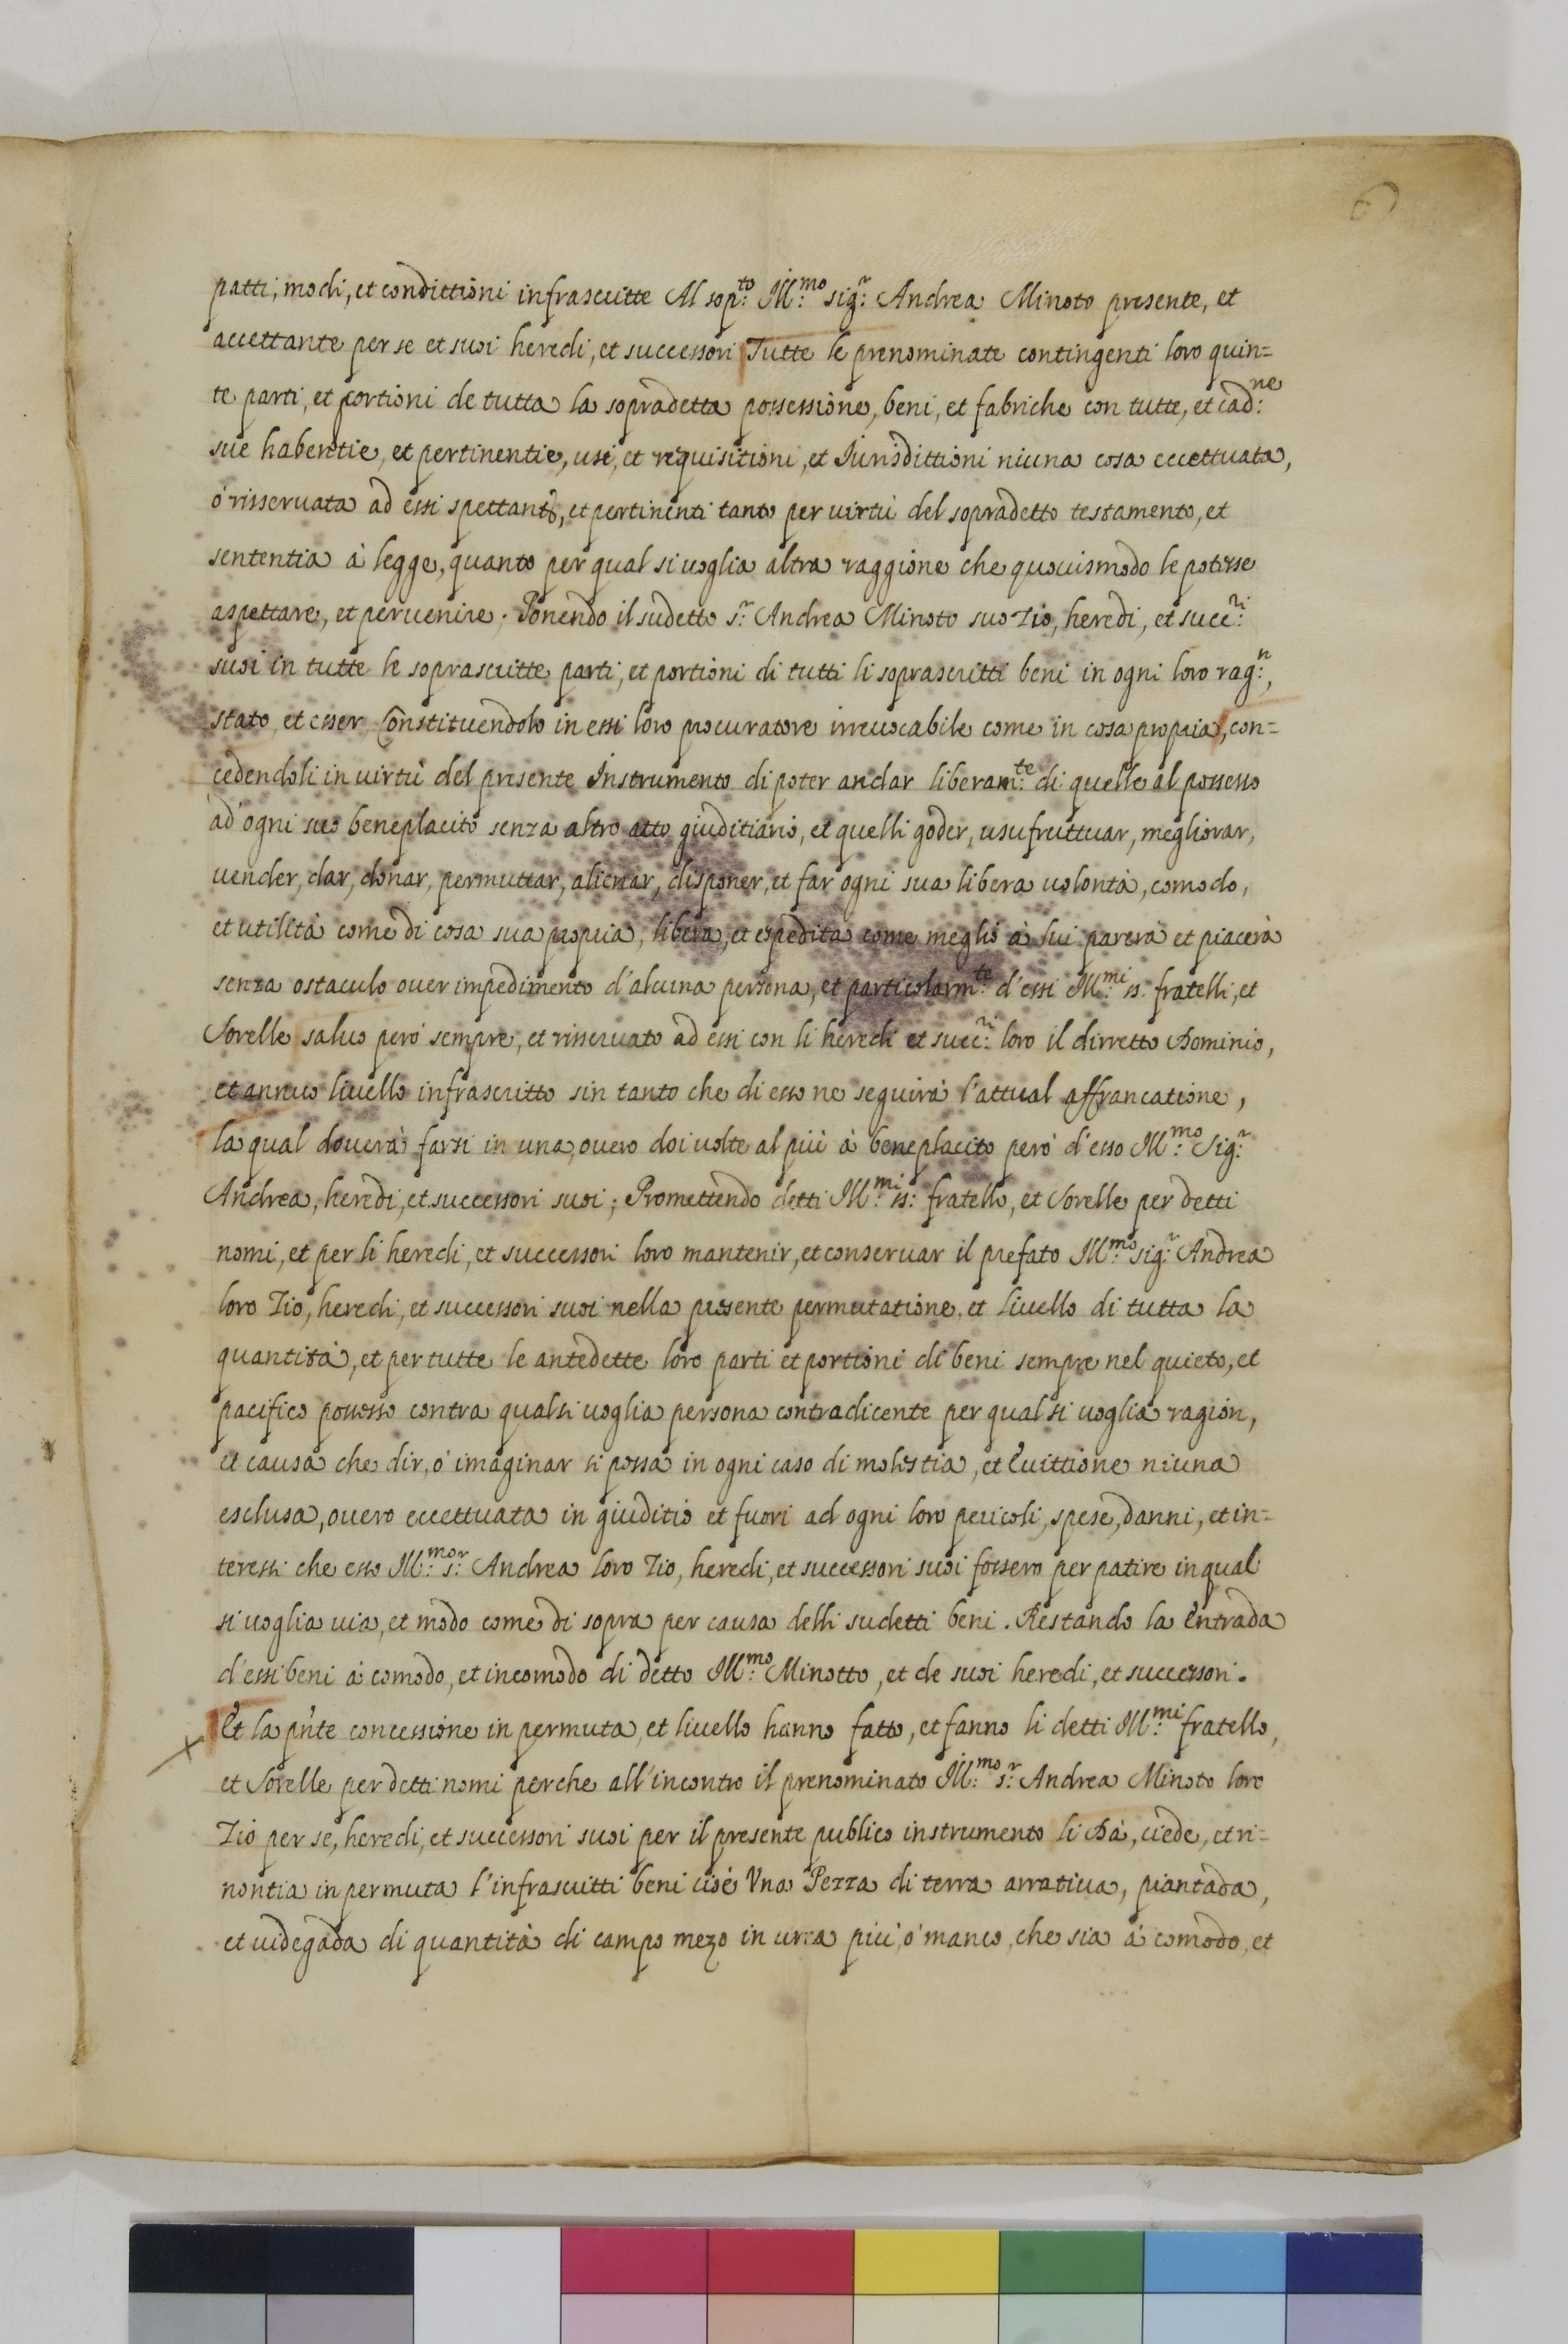 6
patti, modi, et condittioni infrascritte Al sop:to Ill:mo sig:r Andrea Minoto presente, et
accettante per se et suoi heredi, et successori Tutte le prenominate contingenti loro quin=
te parti, et portioni de tutta la sopradetta possessione, beni, et fabriche con tutte, et cad:ne
sue habentie, et pertinentie, usi, et requisitioni, et Iurisdittioni niuna cosa eccettuata,
ò risservata ad essi spettanti, et pertinenti tanto per virtù del sopradetto testamento, et
sententia à legge, quanto per qual si voglia altra raggione che quovismodo le potesse
aspettare, et pervenire. Ponendo il sudetto s:r Andrea Minoto suo Zio, heredi, et succ:ri
suoi in tutte le soprascritte parti, et portioni di tutti li soprascritti beni in ogni loro rag:n,
stato, et esser Constituendolo in essi loro procuratore irrevocabile come in cosa propria, con=
cedendoli in virtù del presente Instrumento di poter andar liberam:te di quelle al possesso
ad ogni suo beneplacito senza altro atto giuditiario, et quelli goder, usufruttuar, megliorar,
vender, dar, donar, permuttar, alienar, disponer, et far ogni sua libera volontà, comodo,
et utilità come di cosa sua propria, libera, et espedita come meglio à lui parerà et piacerà
senza ostaculo over impedimento d'alcuna persona, et particolarm:te d'essi Ill:mi ss: fratelli, et
Sorelle salvo però sempre, et risservato ad essi con li heredi et succ:ri loro il dirretto Dominio,
et annuo livello infrascritto sin tanto che di esso ne seguirà l'attual affrancatione,
la qual doverà farsi in una, overo doi volte al più à beneplacito però d'esso Ill:mo Sig:r
Andrea, heredi, et successori suoi; Promettendo detti Ill:mi ss: fratello, et Sorelle per detti
nomi, et per li heredi, et successori loro mantenir, et conservar il prefato Ill:mo sig:r Andrea
loro Zio, heredi, et successori suoi nella presente permutatione, et livello di tutta la
quantità, et per tutte le antedette loro parti et portioni di beni sempre nel quieto, et
pacifico possesso contra qualsi voglia persona contradicente per qual si voglia ragion,
et causa che dir, ò imaginar si possa in ogni caso di molestia, et Evittione niuna
esclusa, overo eccettuata in giuditio et fuori ad ogni loro pericoli, spese, danni, et in=
teressi che esso Ill:mo s:r Andrea loro Zio, heredi, et successori suoi fossero per patire in qual
si voglia via, et modo come di sopra per causa delli sudetti beni. Restando la Entrada
d'essi beni à comodo, et incomodo di detto Ill:mo Minotto, et de suoi heredi, et successori.
Et la pñte concessione in permuta, et livello hanno fatto, et fanno li detti Ill:mi fratello,
et Sorelle per detti nomi perche all'incontro il prenominato Ill:mo s:r Andrea Minoto loro
Zio per se, heredi, et successori suoi per il presente publico instrumento li Dà, ciede, et ri=
nontia in permuta l'infrascritti beni cioè Una Pezza di terra arrativa, piantada,
et videgada di quantità di campo mezo in circa più, ò manco, che sia à comodo, et